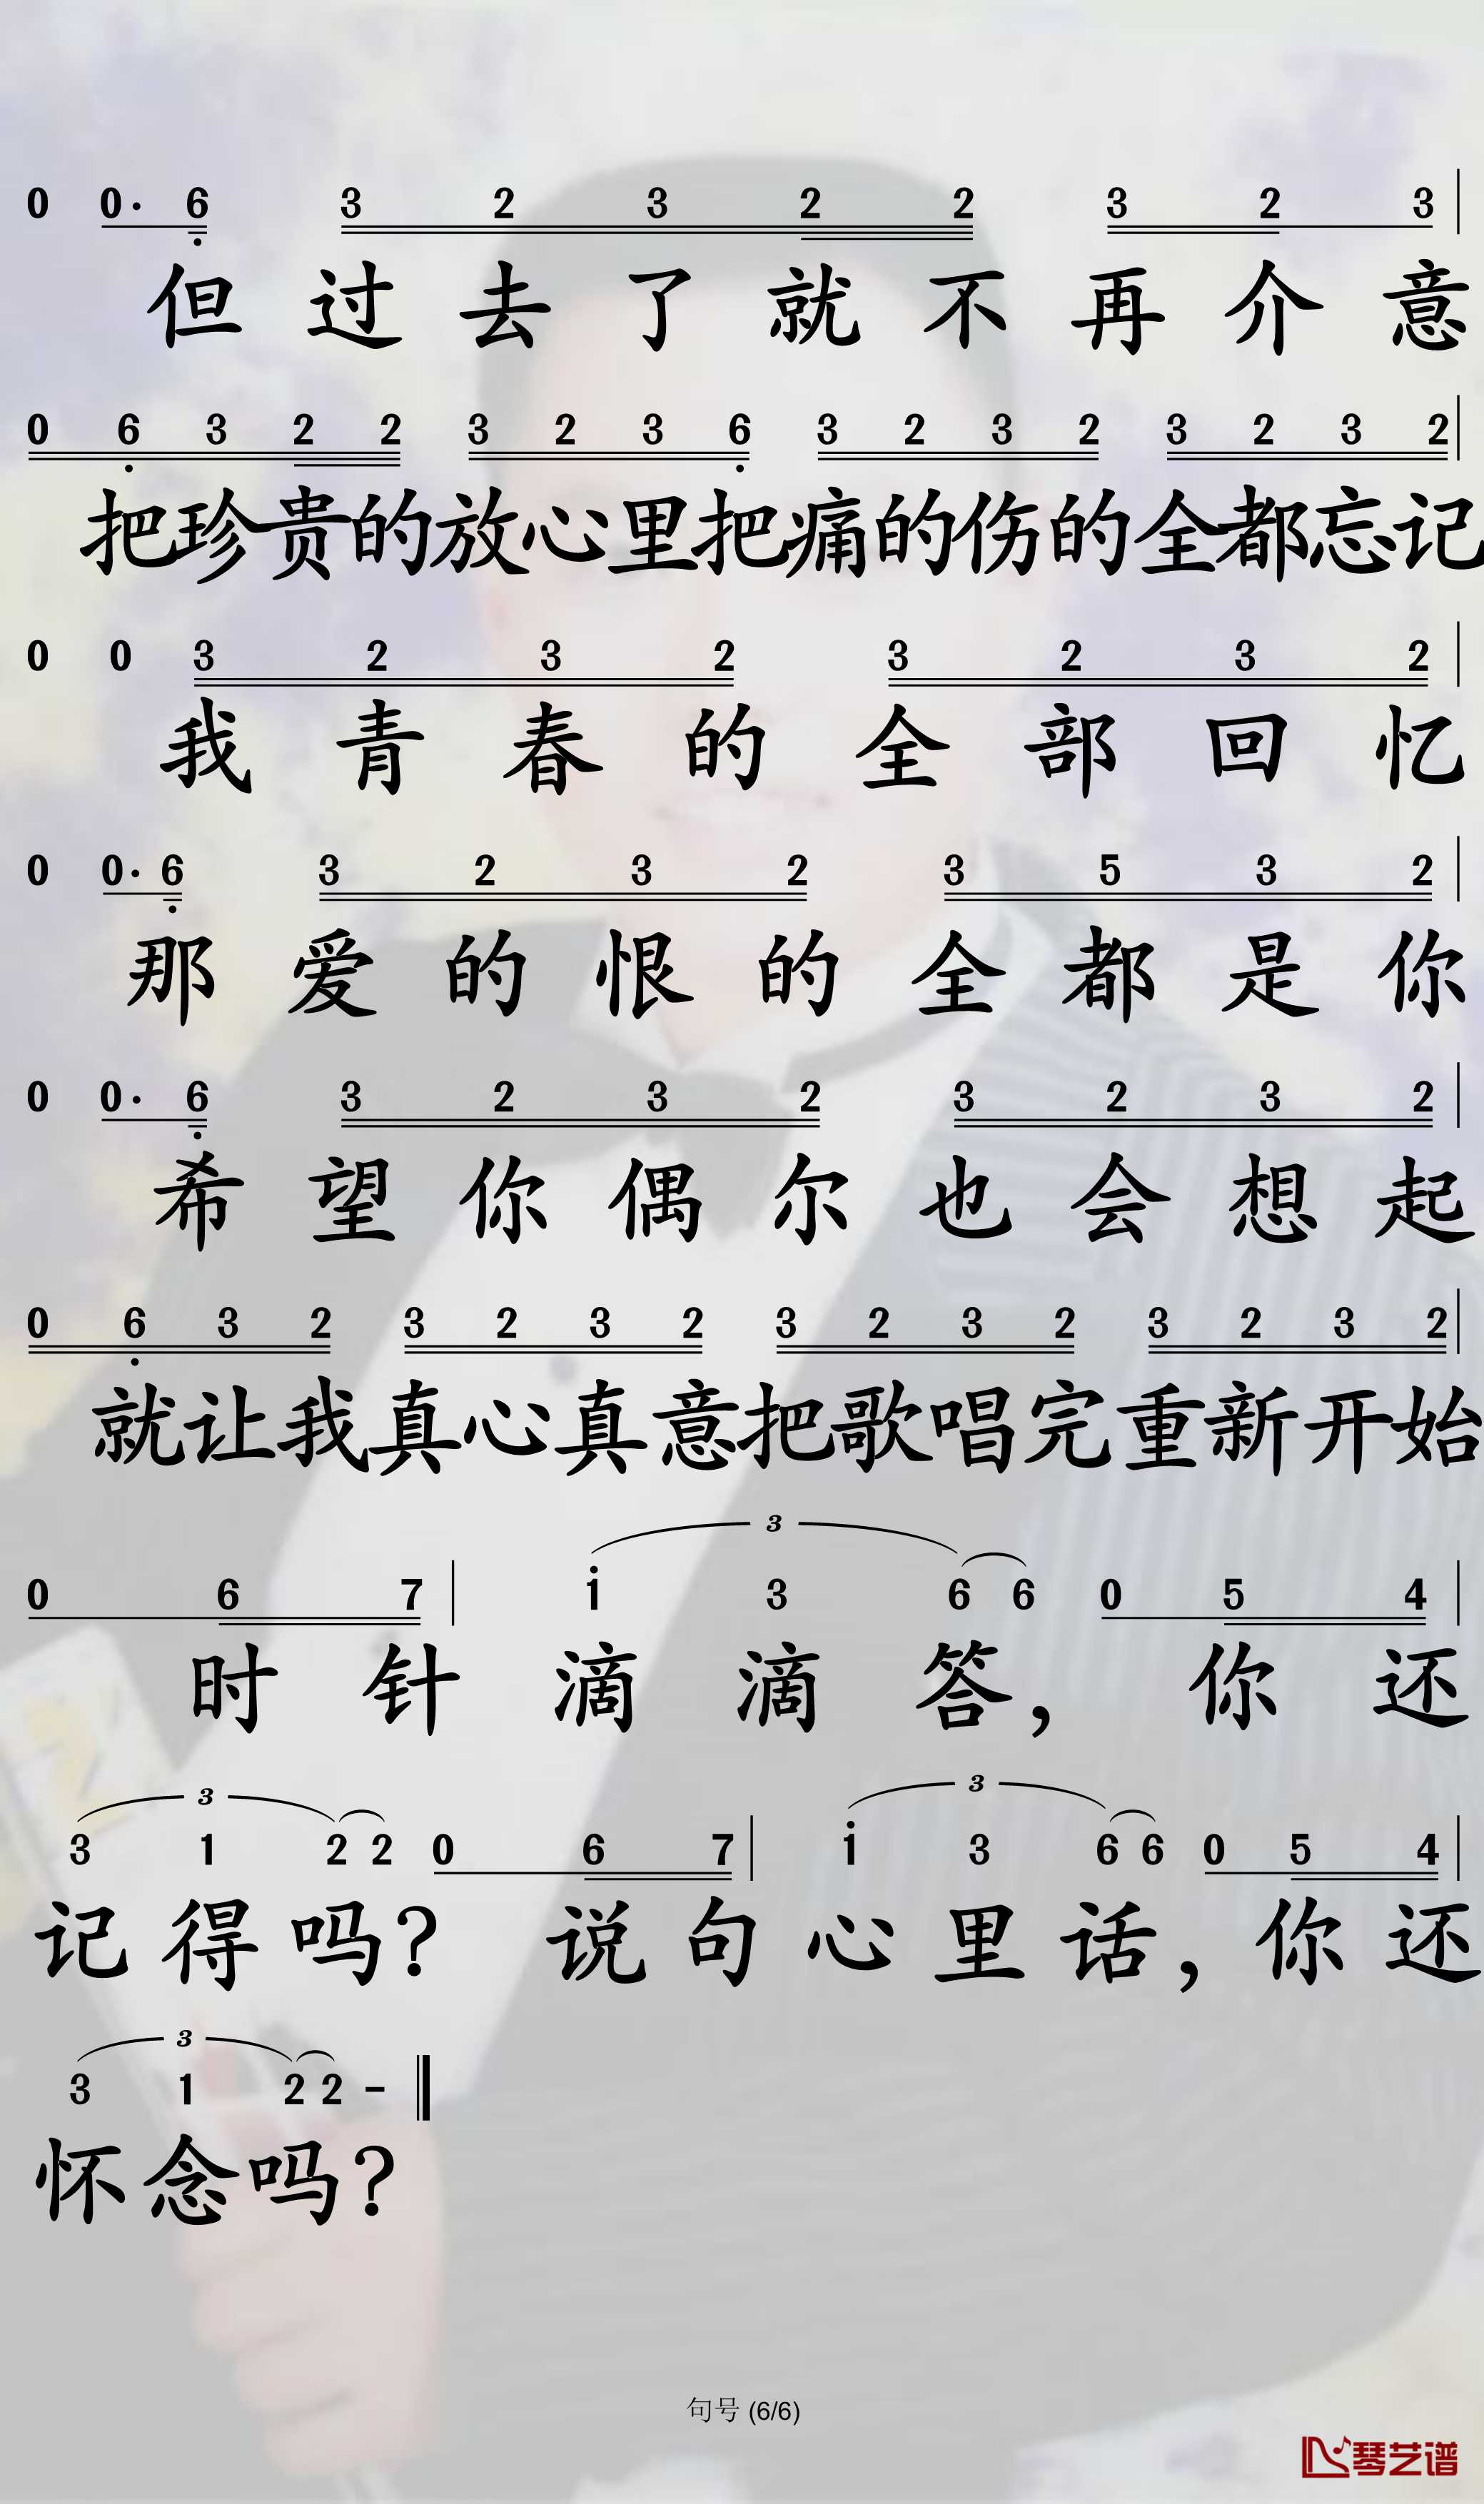 0 0· 6 3 2 3 2 2 3 2 3
但过去了就不再介意
0 6 3 2 2 3 2 3 6 3 2 3 2 3 2 3 2
把珍贵的放心里把痛的伤的全都忘记
0 0 3 2 3 2 3 2 3 2
我青春的全部回忆
0 0· 6 3 2 3 2 3 5 3 2
那爱的恨的全都是你
0 0· 6 3 2 3 2 3 2 3 2
希望你偶尔也会想起
0 6 3 2 3 2 3 2 3 2 3 2 3 2 3 2
就让我真心真意把歌唱完重新开始
3
0 6 7 1 3 6 6 0 5 4
时针滴滴答，你还
3 3
3 1 2 2 0 6 7 1 3 6 6 0 5 4
记得吗？说句心里话，你还
3
3 1 2 2 -
怀念吗？
句号 (6/6)
琴艺谱